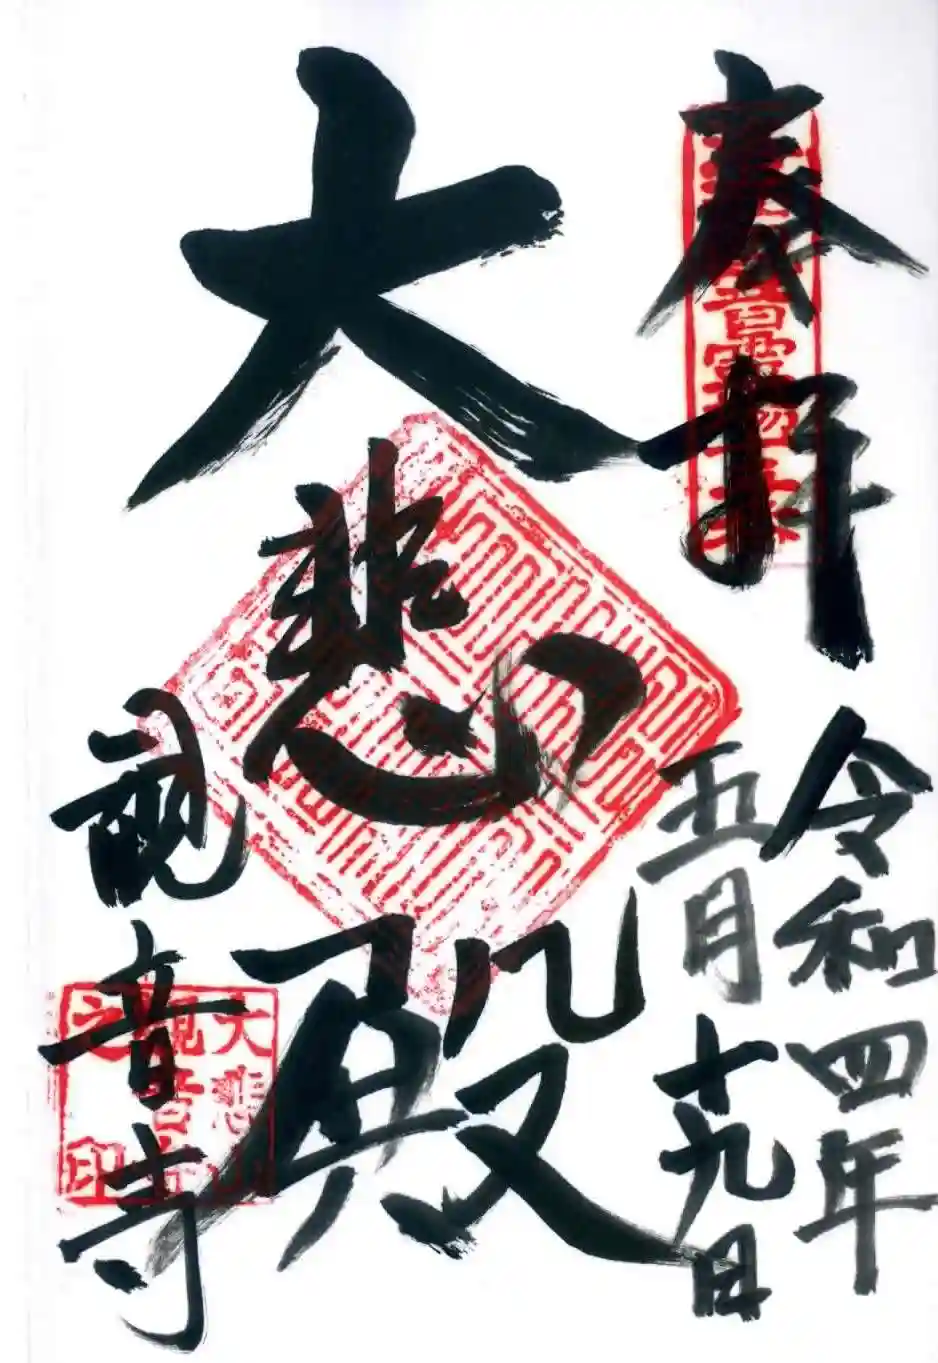 奉拝
令和四年
五月十九日
大悲殿
観音寺
大悲山
観音寺
之印